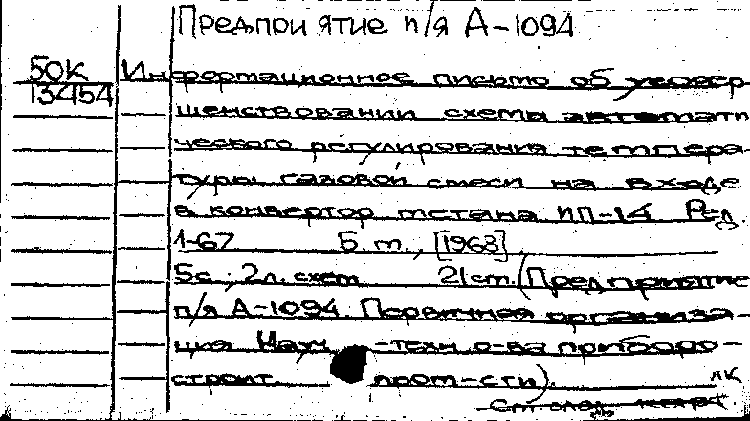 Предприятие п/я А-1094
50К Информационное письмо об усовер
13454
шенствовании схемы автомати
ческого регулирования темпера-
туры газовой смеси на входе
в конвертор метана ИП-14 Ред.
1-67 Б. м., [1968]
5с.; 2л. схем 21 cm. (Предприятие
п/я А-1094. Первичная организа-
ция Науч.-техн. о-ва приборо-
строит. пром-сти).
ЛК
См. след. карт.